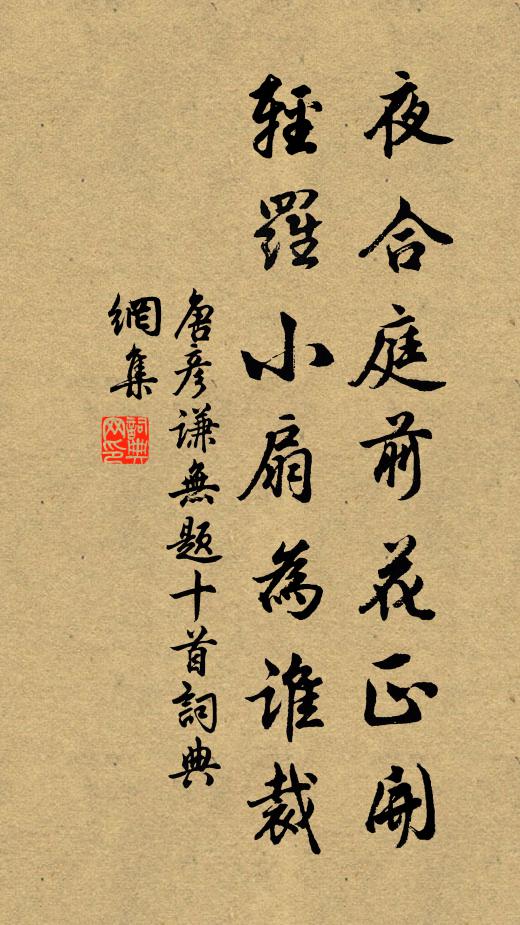 夜合庭前花正開
輕羅小扇為誰裁
唐彥謙無題十首詞典
網集
詞典
网印